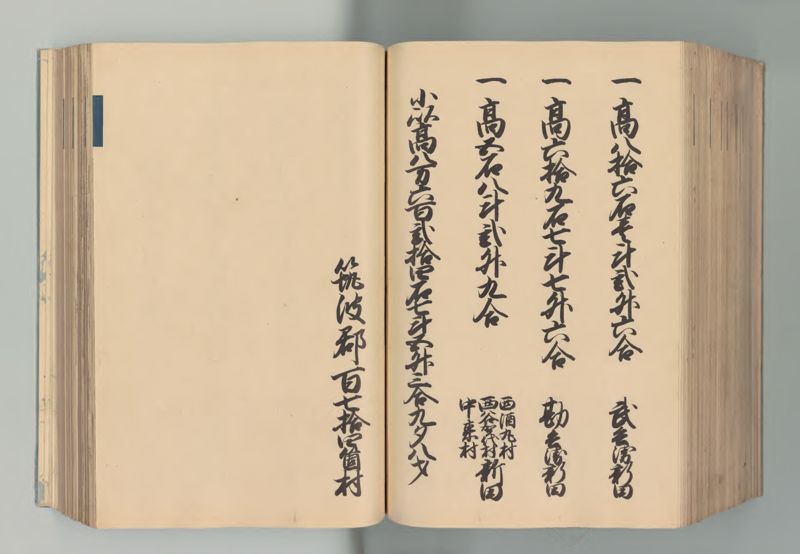 一高八拾六石壱斗弐升六合 武兵衛新田
一高六拾九石七斗七升六合 勘兵衛新田
一高五石八斗弐升九合
西酒丸村
西谷貝村新田
中東村
小以高八万六百弐拾四石七斗五升三合九夕八才
筑波郡百七拾四箇村